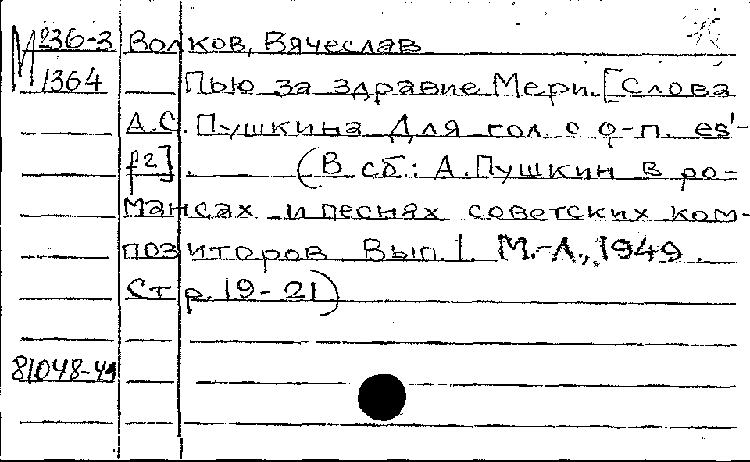 М 236-3 Волков, Вячеслав
1364 Пью за здравие Мери. [Слова
А.С. Пушкина Для гол. с ф-п. es'-
f2]. (В сб.: А. Пушкин в ро-
мансах и песнях советских ком-
позиторов Вып. 1. М.-Л., 1949.
Стр. 19-21)
81048-49